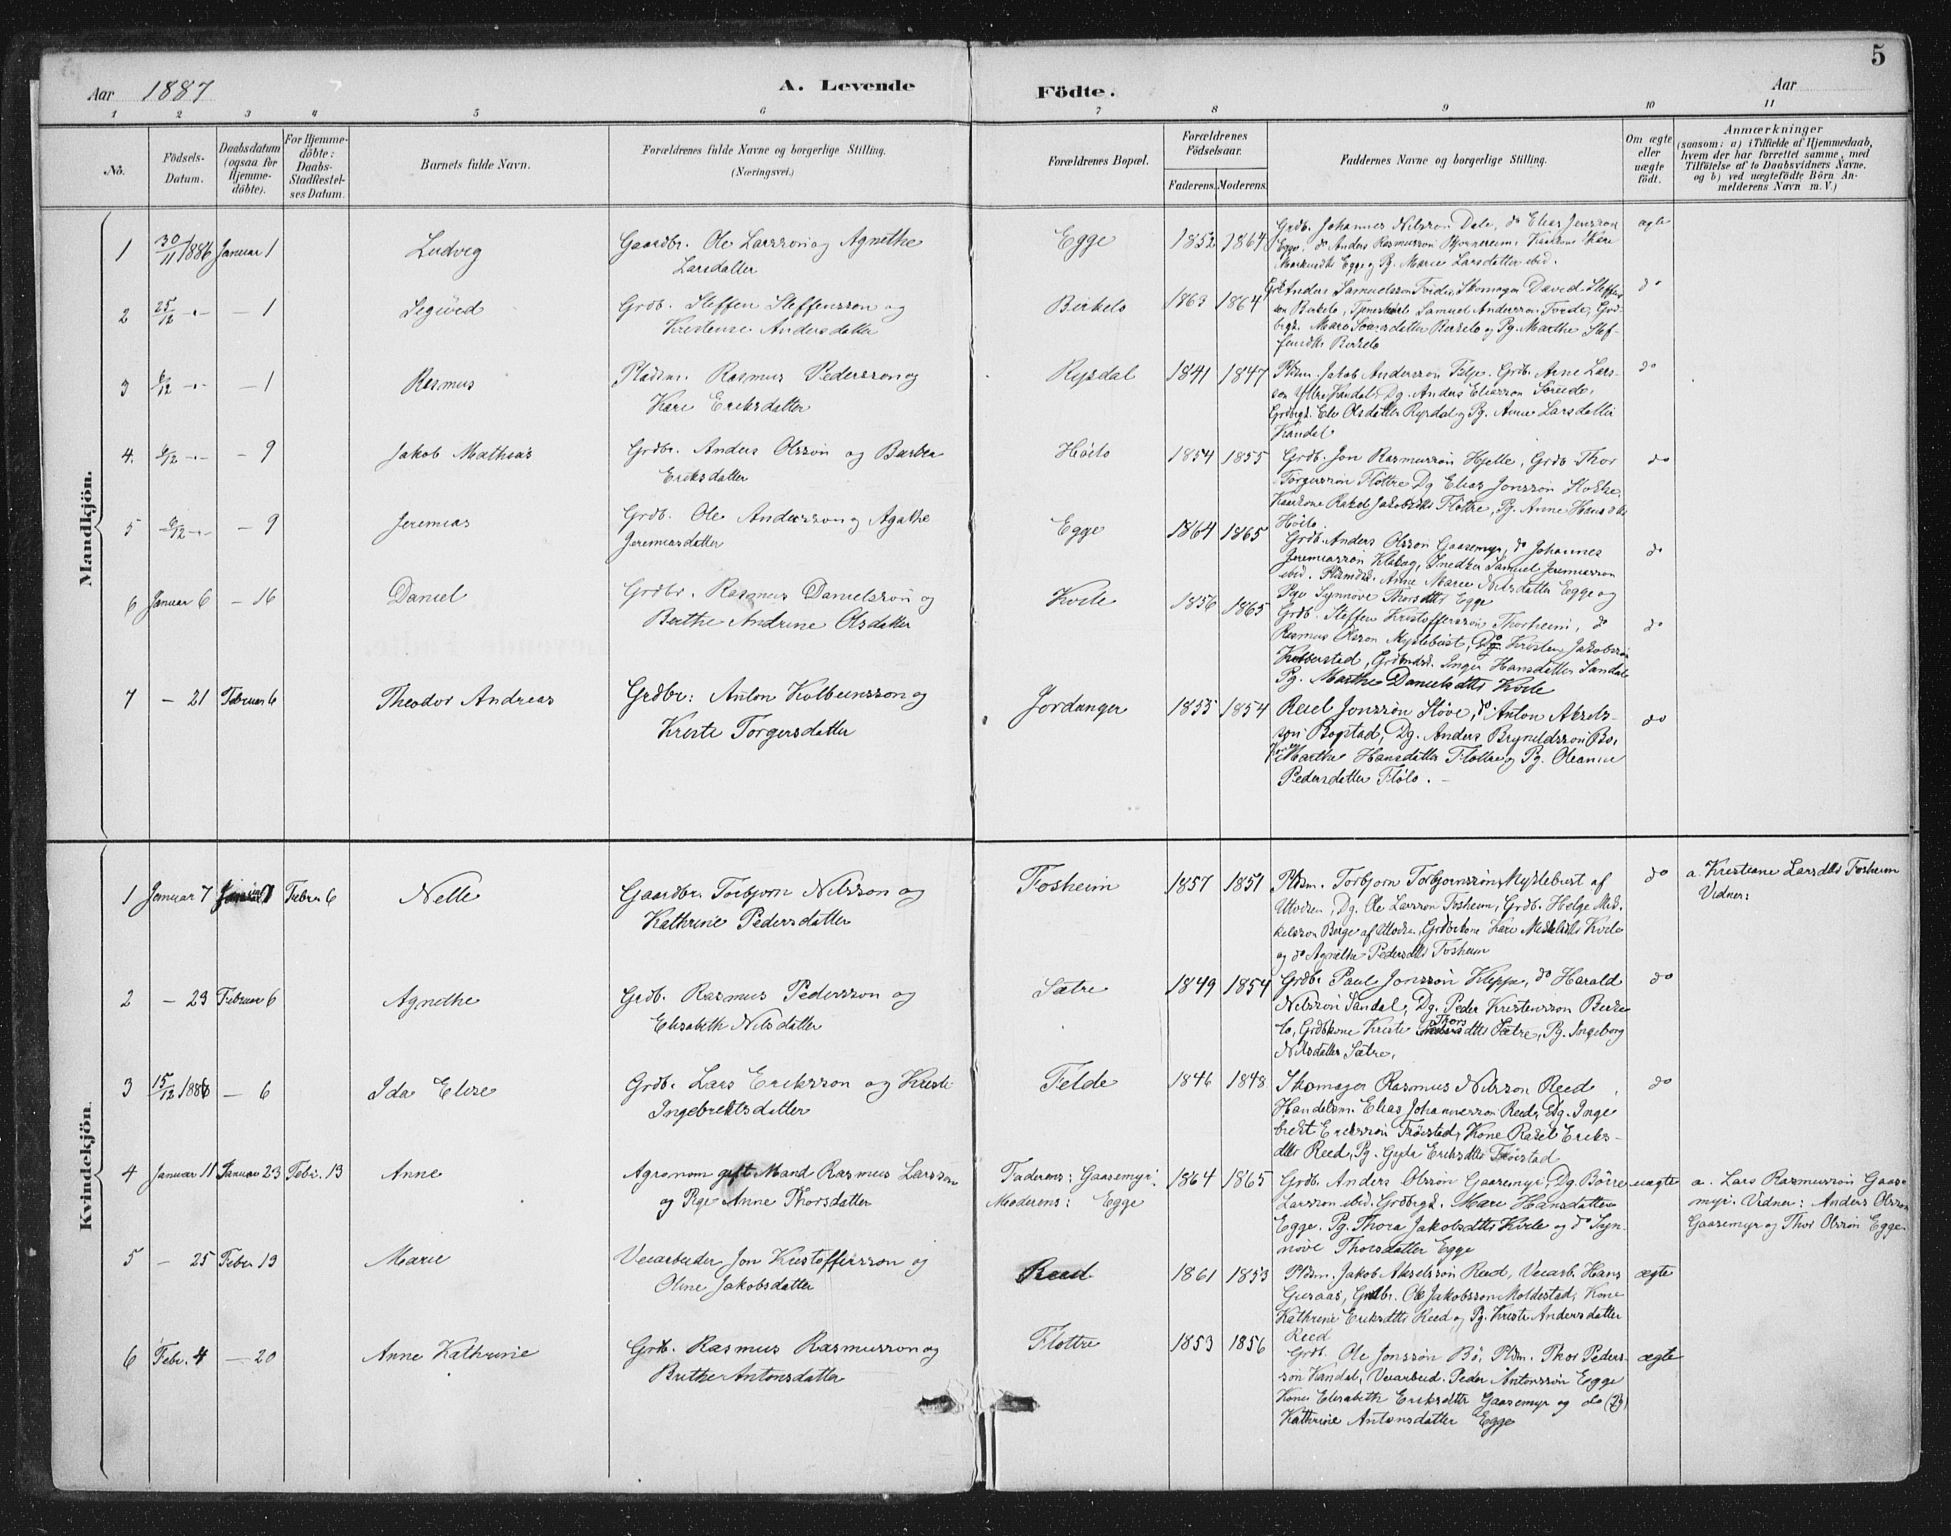 5
Aar 1887
A. Levende
Födte.
Aar
1 2 3 4 5 6 7 8 9 10 11
No.
Födsels-
Datum.
Daabsdatum
(ogsaa for
Hjemme-
döbte).
For Hjemme-
döbte:
Daabs-
Stadfæstel-
ses Datum.
Barnets fulde Navn.
Forældrenes fulde Navne og borgerlige Stilling.
(Næringsvei.)
Forældrenes Bopæl.
Forældrenes
Födselsaar.
Faderens. Moderens.
Faddernes Navne og borgerlige Stilling.
Om ægte
eller
uægte
födt.
Anmærkninger
(saasom: a) i Tilfælde af Hjemmedaab,
hvem der har forrettet samme, med
Tilföielse af to Daabsvidners Navne.
og b) ved uægtefödte Börn An-
melderens Navn m. V.)
Mandkjön.
1 30/11 1886 Januar 1 Ludvig
Gaardbr. Ole Larssøn og Agnethe
Larsdatter
Egge 1852 1864
Grdb. Johannes Nilssøn Dale, do Elias Jenssøn
Egge, do Anders Rasmussøn
Egge og Pg. Marie Larsdatter ibid.
ægte
2 25/12 - - 1 Sigurd
Grdb. Steffen Steffenssøn og
Kristense Andersdatter
Birkelo 1863 1864
Anders Samuelssøn Skomager David Steffens
søn Birkelo, Samuel Anderssøn
Birkelo og Pg. Marthe Stef-
fensdtr Birkelo
do
3 6/12 - - 1 Rasmus
Pladsm. Rasmus Pederssøn og
Kari Eriksdatter
Rysdal 1841 1847
Pldsm. Jakob Anderssøn Grdb. Arne Lars-
søn Ytre Kandal, Dg. Anders Eliassøn
Olsdatter Rysdal og Pg. Anne Larsdatter
Kandal
do
4. 6/12 - - 9 Jakob Mathias
Grdbr. Anders Olssøn og Barbra
Eriksdatter
Höilo 1854 1855
Grdb. Jon Rasmussøn Hjelle, Grdb Thor
Torgerssøn Flöttre Dg Elias Jonssøn
Rakel Jakobsdtr Flöttre, Pg. Anne Hansdtr
Höilo
do
5 6/12 - - 9 Jeremias
Grdb. Ole Anderssøn og Agathe
Jeremiasdatter
Egge 1864 1865
Grdb. Anders Olssøn Gaasemyr, do Johannes
Jeremiassøn Snedker Samuel Jeremiassøn
ibid. Anne Marie Nilsdatter Egge og
Pge Synnöve Thorsdtr Egge
do
6 Januar 6 - 16 Daniel
Grdbr. Rasmus Danielssøn og
Berthe Andrine Olsdatter
Kvile 1856 1865
Grdb. Steffen Kristofferssøn Thorheim, do
Rasmus Olssøn Myklebust, Dg Kristen Jakobssøn
Inger Hansdatter Sandal
Pg. Marthe Danielsdtr Kvile
do
7 - 21 Februar 6 Theodor Andreas
Grdbr: Anton Kolbeinssøn og
Kristi Torgersdatter
Jordanger 1855 1854
Reiel Jonssøn Støve, do Anton Aksels-
søn Bogstad, Dg. Anders Brynildssøn Bo.
Marthe Hansdatter Flöttre og Pg. Oleanne
Pedersdatter Flölo. -
do
Kvindekjön.
1 Januar 7 Februar 6 Nelle
Gaardbr. Torbjørn Nilssøn og
Kathrine Pedersdatter
Fosheim 1857 1851
Pldsm. Torbjørn Torbjørnssøn Myklebust af
Utviken, Dg. Ole Larssøn Fosheim, Grdb. Helge Mik-
kelssøn Berge af Utviken, Grdbrkone Kari Kvile
og do Agnethe Pedersdtr Fosheim
do
a. Kristiane Larsdtr Fosheim
Vidner:
2 - 23 Februar 6 Agnethe
Grdb. Rasmus Pederssøn og
Elisabeth Nilsdatter
Sætre 1849 1854
Grdbr Paul Jonssøn Kleppe, do Harald
Nilssøn Sandal, Dg. Peder Kristenssøn Birke-
lo, Grdbkone Kristi Thorsdtr Sætre, Pg. Ingeborg
Nilsdatter Sætre,
do
3 15/12 1886 - 6 Ida Elise
Grdb. Lars Erikssøn og Kristi
Ingebrektsdatter
Felde 1846 1848
Skomager Rasmus Nilssøn Reed
Handelsm. Elias Johannessøn Reed, Dg. Inge
brekt Erikssøn Tröistad, Kone Rakel Eriks-
dtr Reed, Pg. Gyda Eriksdtr Tröistad
do
4 Januar 11 Januar 23 Febr. 13 Anne
Agronom gift Mand Rasmus Larssøn
og Pige Anne Thorsdatter
Faderens: Gaasemyr.
Moderens: Egge
1864 1865
Grdb. Anders Olssøn Gaasemyr, Dg. Børre
Larssøn ibid. Marie Hansdatter
Egge. Pg. Thora Jakobsdtr Kvile og do Syn-
növe Thorsdatter Egge
uægte
a. Lars Rasmussøn Gaase-
myr. Vidner: Anders Olssøn
Gaasemyr og Thor Olssøn Egge
5 - 25 Febr. 13 Marie
Veiarbeider Jon Kristofferssøn og
Oline Jakobsdatter
Reed 1861 1853
Pldsm. Jakob Akselssøn Reed, Veiarb. Hans
Gieraas, Grdbr. Ole Jakobssøn Moldestad, Kone
Kathrine Eriksdtr Reed og Pg. Kristi Andersdatter
Reed
ægte
6 Febr. 4 - 20 Anne Kathrine
Grdb. Rasmus Rasmussøn og
Brithe Antonsdatter
Flöttre 1853 1856
Grdb. Ole Jonssøn Bö, Pldsm. Thor Peders-
søn Kandal, Veiarbeid. Peder Antonssøn Egge
Kone Elisabeth Eriksdtr Gaasemyr og do (Pg)
Kathrine Antonsdatter Egge
ægte